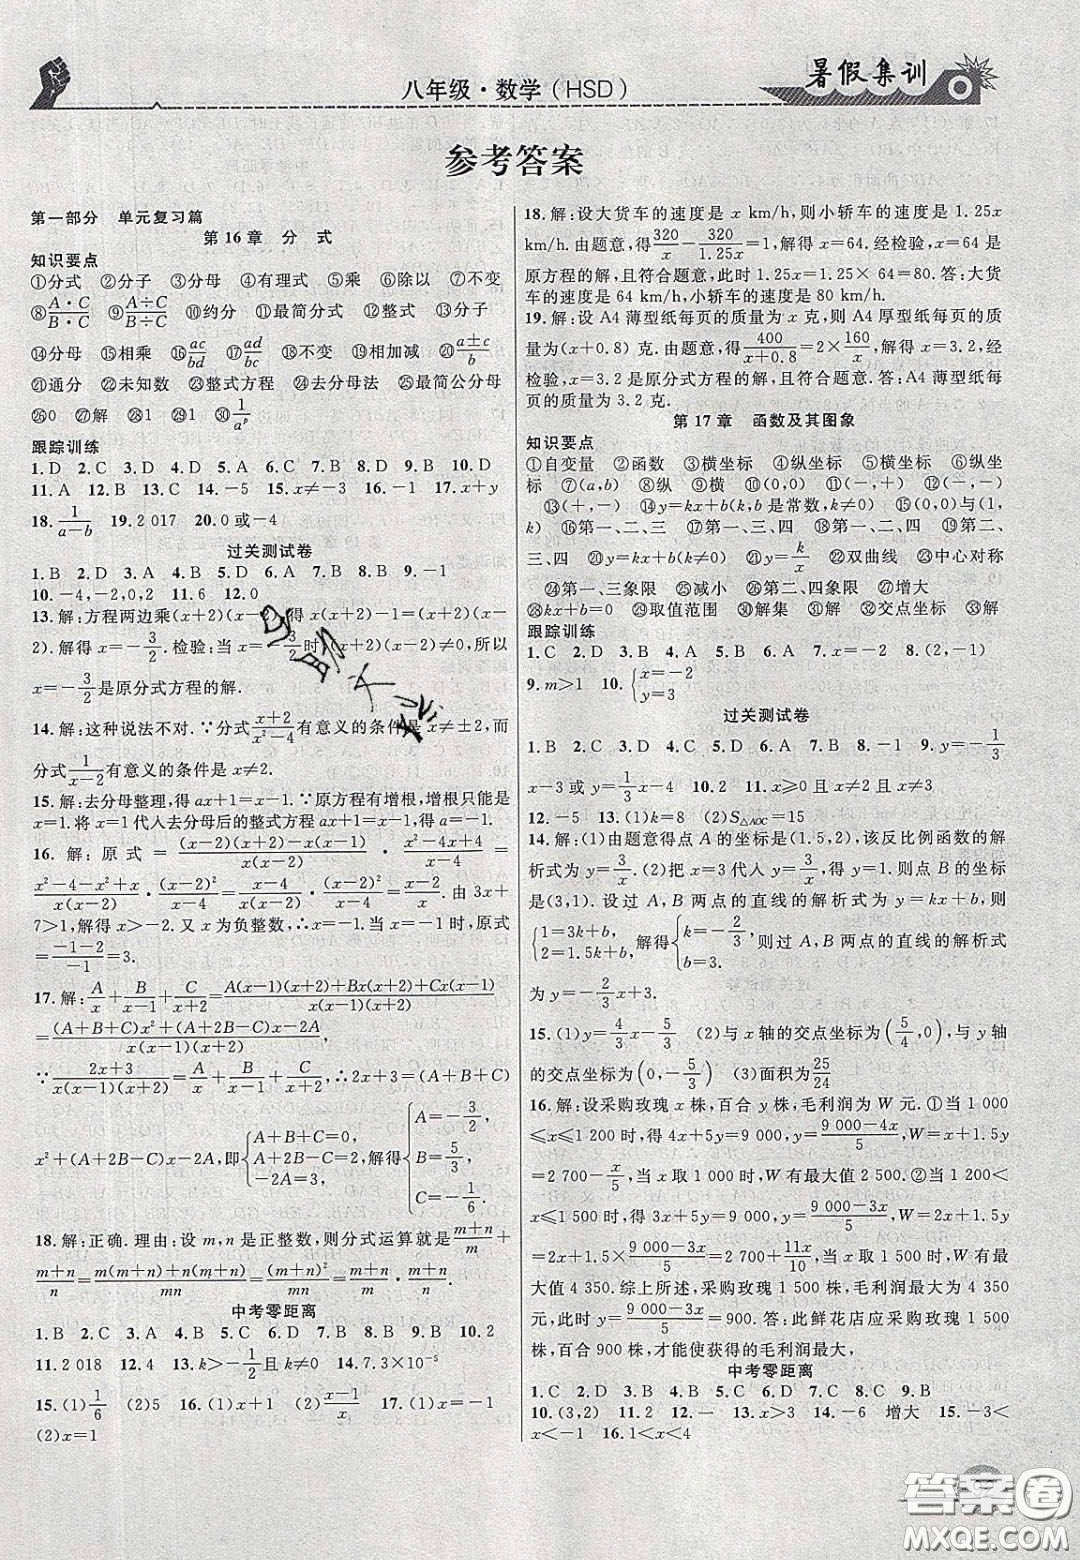 八年级·数学(HSD)
暑假集训
参考答案
第一部分 单元复习篇
第16章 分 式
知识要点
①分式 ②分子 ③分母 ④有理式 ⑤乘 ⑥除以 ⑦不变
⑧A·C/B·C ⑨A÷C/B÷C ⑩约分 ⑪最简分式 ⑫整式 ⑬分子
⑭分母 ⑮相乘 ⑯ac/bd ⑰ad/bc ⑱不变 ⑲相加减 ⑳a±c/b
㉑通分 ㉒未知数 ㉓整式方程 ㉔去分母法 ㉕最简公分母
㉖0 ㉗解 ㉘1 ㉙1 ㉚1/aᵖ
跟踪训练
1.D 2.C 3.D 4.D 5.A 6.C 7.B 8.B 9.B 10.D
11.A 12.B 13.C 14.-5 15.x≠-3 16.-1 17.x+y
18.1/(a-b) 19.2 017 20.0或-4
过关测试卷
1.B 2.D 3.D 4.A 5.B 6.D 7.A 8.B 9.-1
10.-4,-2,0,2 11.6 12.0
13.解:方程两边乘(x+2)(x-2),得x(x+2)-1=(x+2)(x-
2).解得x=-3/2.检验:当x=-3/2时,(x+2)(x-2)≠0,所以
x=-3/2是原分式方程的解.
14.解:这种说法不对.∵分式(x+2)/(x²-4)有意义的条件是x≠±2,而
分式1/(x-2)有意义的条件是x≠2.
15.解:去分母整理,得ax+1=0.∵原方程有增根,增根只能是
x=1.将x=1代入去分母后的整式方程ax+1=0,得a=-1.
16.解:原式=((x-2)(x+2)-x(x-1))/(x(x-2))·(x²-4x+4)/(x-4)=
(x²-4-x²+x)/(x(x-2))·(x-2)²/(x-4)=(x-4)/(x(x-2))·(x-2)²/(x-4)=(x-2)/x.由3x+
7>1,解得x>-2.又x为负整数,∴x=-1.当x=-1时,原式=
(-1-2)/(-1)=3.
17.解:A/x+B/(x-1)+C/(x+2)=(A(x-1)(x+2)+Bx(x+2)+Cx(x-1))/(x(x-1)(x+2))
=((A+B+C)x²+(A+2B-C)x-2A)/(x(x-1)(x+2)),
∵(2x+3)/(x(x-1)(x+2))=A/x+B/(x-1)+C/(x+2),∴2x+3=(A+B+C)
x²+(A+2B-C)x-2A,即{A+B+C=0, A+2B-C=2, -2A=3,解得{A=-3/2, B=5/3, C=-1/6.
18.解:正确.理由:设m,n是正整数,则分式运算就是(m+n)/m+
(m+n)/n=(m+n)²/mn=(m+n)/m·(m+n)/n.
中考零距离
1.B 2.C 3.A 4.B 5.C 6.D 7.B 8.B 9.B 10.2
11.2 018 12.4 13.k>-1/2且k≠0 14.7.3×10⁻⁵
15.(1)1/6 (2)x=1 16.(1)x=0 (2)(x-1)/x 17.(1)x=1
(2)x=1
18.解:设大货车的速度是x km/h,则小轿车的速度是1.25x
km/h.由题意,得320/x-320/1.25x=1,解得x=64.经检验,x=64是
原方程的解,且符合题意,此时1.25x=1.25×64=80.答:大货
车的速度是64 km/h,小轿车的速度是80 km/h.
19.解:设A4薄型纸每页的质量为x克,则A4厚型纸每页的质
量为(x+0.8)克.由题意,得400/(x+0.8)=2×160/x,解得x=3.2,经
检验,x=3.2是原分式方程的解,且符合题意.答:A4薄型纸每
页的质量为3.2克.
第17章 函数及其图象
知识要点
①自变量 ②函数 ③横坐标 ④纵坐标 ⑤横坐标 ⑥纵坐
标 ⑦(a,b) ⑧纵 ⑨横 ⑩(0,0) ⑪(+,+) ⑫(-,+)
⑬(+,-) ⑭y=kx+b(k,b是常数,k≠0) ⑮(0,0)与(1,
k) ⑯第一、二、三 ⑰第一、三、四 ⑱第一、二、四 ⑲第二、
三、四 ⑳y=kx+b(k≠0) ㉑y=k/x ㉒双曲线 ㉓中心对称
㉔第一、三象限 ㉕减小 ㉖第二、四象限 ㉗增大
㉘kx+b=0 ㉙取值范围 ㉚解集 ㉛x ㉜交点坐标 ㉝解
跟踪训练
1.C 2.D 3.B 4.C 5.B 6.A 7.x=-2 8.(2,-1)
9.m>1 10.{x=-2 y=3
过关测试卷
1.B 2.C 3.D 4.C 5.D 6.A 7.B 8.-1 9.y=-1/3
x-3或y=1/3x-4 10.2 11.x≥0且x≠3且x≠9
12.-5 13.(1)k=8 (2)S△AOC=15
14.解:(1)由题意得点A的坐标是(1.5,2),该反比例函数的解
析式为y=3/x.(2)把x=3代入y=3/x,得y=1.则点B的坐标
是(3,1).设过A,B两点的直线的解析式为y=kx+b,则
{1=3k+b, 2=1.5k+b,解得{k=-2/3, b=3.则过A,B两点的直线的解析式
为y=-2/3x+3.
15.(1)y=4/3x-5/3 (2)与x轴的交点坐标为(5/4,0),与y轴
的交点坐标为(0,-5/3) (3)面积为25/24
16.解:设采购玫瑰x株,百合y株,毛利润为W元.①当1 000
≤x≤1 200时,得4x+5y=9 000,y=(9 000-4x)/5,W=x+1.5y
=2 700-x/5,当x取1 000时,W有最大值2 500.②当1 200<
x≤1 500时,得3x+5y=9 000,y=(9 000-3x)/5,W=2x+
1.5y=2x+1.5×(9 000-3x)/5=2 700+11x/10,当x取1 500时,W有
最大值4 350.综上所述,采购玫瑰1 500株,毛利润最大为4 350
元,此时y=(9 000-3x)/5=900.答:此鲜花店应采购玫瑰1 500
株、百合900株,才能使获得的毛利润最大,
中考零距离
1.C 2.D 3.B 4.B 5.C 6.D 7.D 8.C 9.B
10.(3,2) 11.2 12.一 13.x>3 14.-6 增大 15.-3<
x<-1 16.1<x<4
答案圈
MXQE.COM